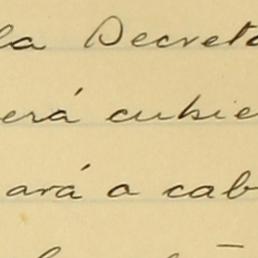 la Decreto
erá cubie
ará a cab